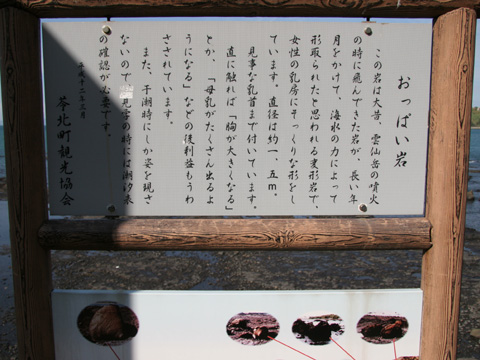 おっぱい岩
この岩は大昔、雲仙岳の噴火
の時に飛んできた岩が、長い年
月をかけて、海水の力によって
形取られたと思われる変形岩で、
女性の乳房にそっくりな形をし
ています。直径は約一．五m。
見事な乳首まで付いています。
直に触れば「胸が大きくなる」
とか、「母乳がたくさん出るよ
うになる」などの御利益もうわ
さされています。
また、干潮時にしか姿を現さ
ないので、見学の時には潮汐表
の確認が必要です。
平成十二年三月
苓北町観光協会